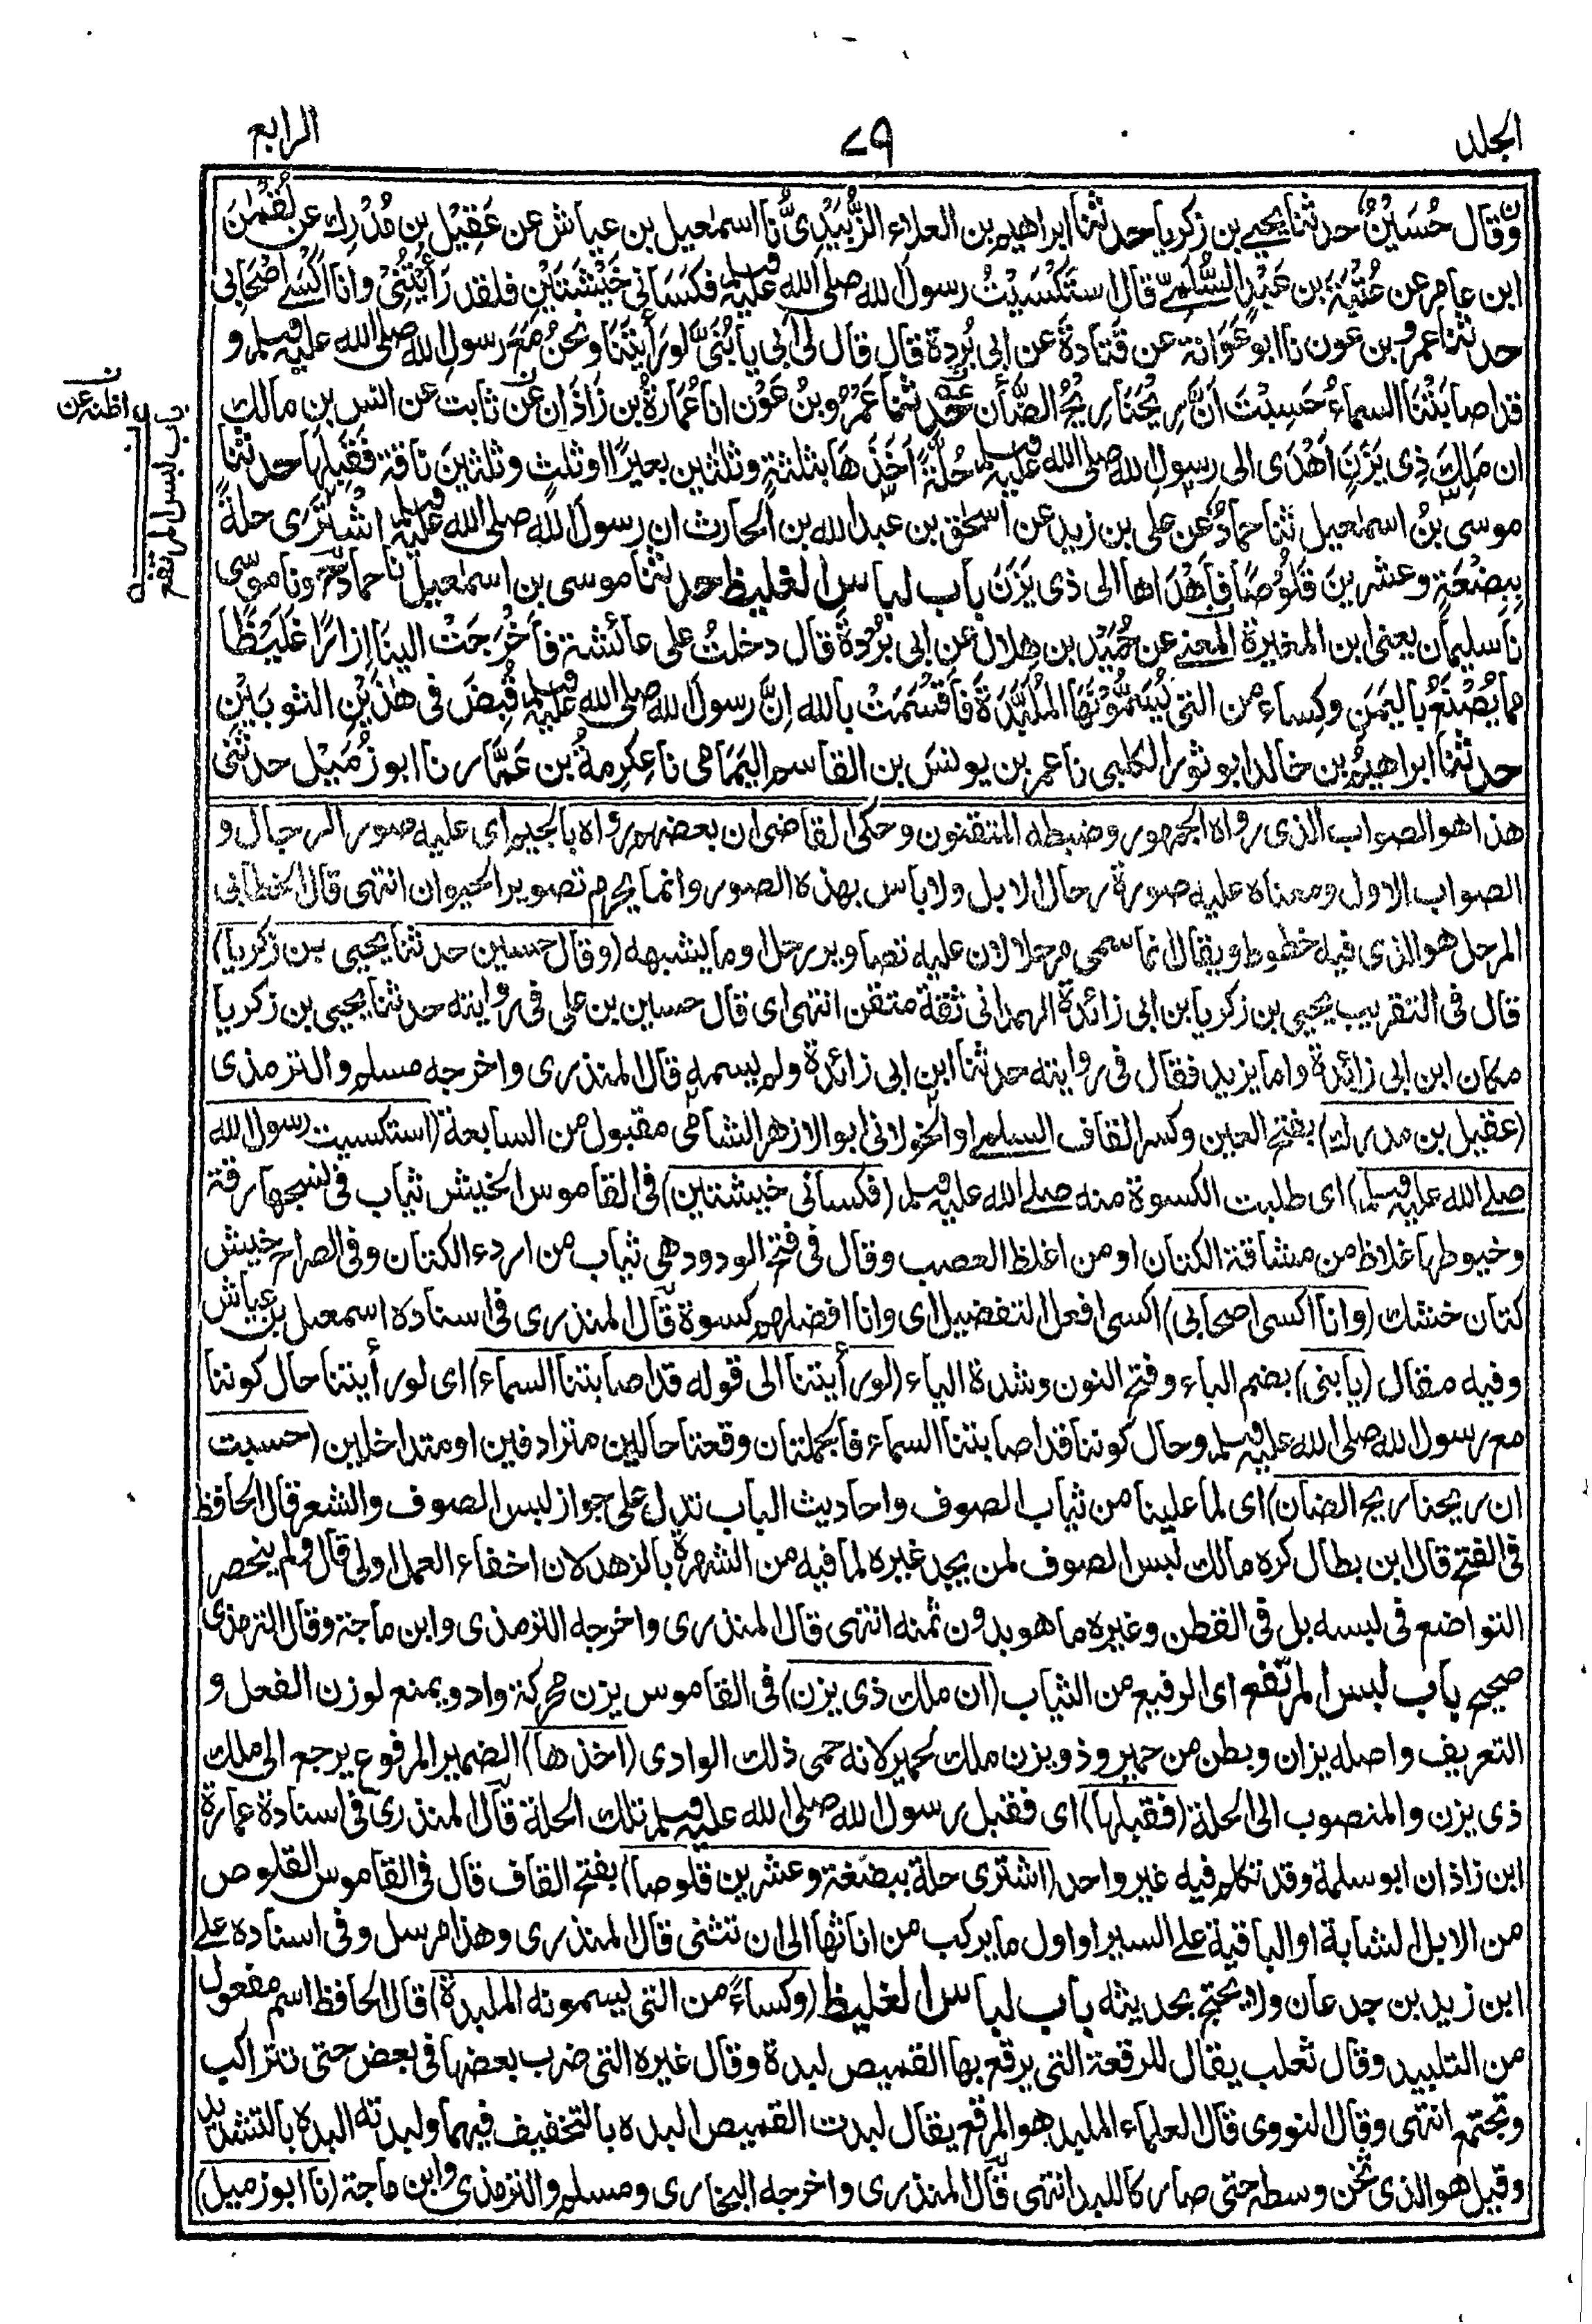 المجلد
٧٩
الرابع
وقال حُسَيْنٌ حدثنا يحيى بن زكريا حدثنا ابراهيم بن العلاء الزُّبَيْدِىُّ نا اسمٰعيل بن عياش عن عَقِيْلِ بن مُدْرِك عن لُقْمٰنَ
ابن عامر عن عُتْبَةَ بن عَبْدٍ السُّلَمِىّ قال استَكْسَيْتُ رسولَ الله صلى الله عليه وسلم فكَسَانى خَيْشَتَيْنِ فلقد رَأيْتُنِىْ وانا اَكْسٰى اَصْحَابى
حدثنا عمرو بن عون نا ابو عَوَانة عن قَتَادَةَ عن ابى بُرْدة قال قال لى ابى يا بُنَىَّ لو رَأيْتَنَا ونحن مَعَ رسولِ الله صلى الله عليه وسلم و
قد اصابَتْنَا السماءُ حَسِبْتَ اَنَّ رِيْحَنَا رِيْحُ الضَّأن حدثنا عَمْرُو بنُ عَوْن انا عُمَارَةُ بن زَاذَان عن ثابت عن انس بن مالك
ان مَلِكَ ذِى يَزَنَ اَهْدٰى الى رسولِ الله صلى الله عليه وسلم حُلَّةً اَخَذَهَا بثلثةٍ وثلثين بعيرًا او ثلثٍ وثلثينَ ناقة فقَبِلَهَا حدثنا
موسى بنُ اسمٰعيل ثنا حمادٌ عن على بن زيد عن اسحٰق بن عبد الله بن الحارث ان رسولَ الله صلى الله عليه وسلم اشْتَرٰى حلةً
بِبِضْعَةٍ وعشرينَ قَلُوْصًا فاَهْدَاها الى ذى يَزَنَ باب لباس الغليظ حدثنا موسى بن اسمٰعيل نا حماد ح ونا موسى
نا سليمان يعنى ابن المغيرة المعنى عن حُمَيْدِ بن هلال عن ابى بُرْدَةَ قال دخلتُ على عائشة فاَخْرَجَتْ الينا اِزارًا غَلِيْظًا
مما يُصْنَعُ باليَمَن وكِساء من التى يُسَمُّوْنَهَا المُلَبَّدَةَ فاَقْسَمَتْ بالله اِنَّ رسولَ الله صلى الله عليه وسلم قُبِضَ فى هٰذَيْنِ الثوبَيْنِ
حدثنا ابراهيمُ بن خالد ابو ثور الكلبى نا عمر بن يونس بن القاسم اليَمَامى نا عِكرِمةُ بن عَمَّار نا ابو زُمَيْل حدثنى
هذا هو الصواب الذى رواه الجمهور وضبطه المتقنون وحكى القاضى ان بعضهم رواه بالجيم اى عليه صور الرجال و
الصواب الاول ومعناه عليه صورة رحال الابل ولا باس بهذه الصور وانما يحرم تصوير الحيوان انتهى قال الخطابى
المرحل هو الذى فيه خطوط ويقال انما سمى مرحلا لان عليه تصاوير رحل او ما يشبهه (وقال حسين حدثنا يحيى بن زكريا)
قال فى التقريب يحيى بن زكريا بن ابى زائدة الهمدانى ثقة متقن انتهى اى قال حسين بن على فى روايته حدثنا يحيى بن زكريا
مكان ابن ابى زائدة واما يزيد فقال فى روايته حدثنا ابن ابى زائدة ولم يسمه قال المنذرى واخرجه مسلم والترمذى
(عقيل بن مدرك) بفتح العين وكسر القاف السلمى او الخولانى ابو الازهر الشامى مقبول من السابعة (استكسيت رسول الله
صلى الله عليه وسلم) اى طلبت الكسوة منه صلى الله عليه وسلم (فكسانى خيشتين) فى القاموس الخيش ثياب فى نسجها رقة
وخيوطها غلاظ من مشاقة الكتان او من اغلظ العصب وقال فى فتح الودود هى ثياب من اردء الكتان وفى الصراح خيش
كتان خشك (وانا اكسى اصحابى) اكسى افعل التفضيل اى وانا افضلهم كسوة قال المنذرى فى اسناده اسمعيل بن عياش
وفيه مقال (يا بنى) بضم الباء وفتح النون وشدة الياء (لو رأيتنا الى قوله قد اصابتنا السماء) اى لو رأيتنا حال كوننا
مع رسول الله صلى الله عليه وسلم وحال كوننا قد اصابتنا السماء فالجملتان وقعتا حالين مترادفين او متداخلين (حسبت
ان ريحنا ريح الضان) اى لما علينا من ثياب الصوف واحاديث الباب تدل على جواز لبس الصوف والشعر قال الحافظ
فى الفتح قال ابن بطال كره مالك لبس الصوف لمن يجد غيره لما فيه من الشهرة بالزهد لان اخفاء العمل اولى قال ولم ينحصر
التواضع فى لبسه بل فى القطن وغيره ما هو بدون ثمنه انتهى قال المنذرى واخرجه الترمذى وابن ماجة وقال الترمذى
صحيح باب لبس المرتفع اى الرفيع من الثياب (ان ملك ذى يزن) فى القاموس يزن محركة واد ويمنع لوزن الفعل و
التعريف واصله يزان وبطن من حمير وذو يزن ملك لحمير لانه حمى ذلك الوادى (اخذها) الضمير المرفوع يرجع الى ملك
ذى يزن والمنصوب الى الحلة (فقبلها) اى فقبل رسول الله صلى الله عليه وسلم تلك الحلة قال المنذرى فى اسنادة عمارة
ابن زاذان ابو سلمة وقد تكلم فيه غير واحد (اشترى حلة ببضعة وعشرين قلوصا) بفتح القاف قال فى القاموس القلوص
من الابل الشابة او الباقية على السير او اول ما يركب من اناثها الى ان تثنى قال المنذرى وهذا مرسل وفى اسناده على
ابن زيد بن جدعان ولا يحتج بحديثه باب لباس الغليظ (وكساءً من التى يسمونه الملبدة) قال الحافظ اسم مفعول
من التلبيد وقال ثعلب يقال للرقعة التى يرقع بها القميص لبدة وقال غيره التى ضرب بعضها فى بعض حتى تتراكب
وتجتمع انتهى وقال النووى قال العلماء الملبد هو المرقع يقال لبدت القميص البده بالتخفيف فيهما ولبدته البده بالتشديد
وقيل هو الذى ثخن وسطه حتى صار كاللبد انتهى قال المنذرى واخرجه البخارى ومسلم والترمذى وابن ماجة (نا ابو زميل)
اظنه عن
باب لبس المرتفع